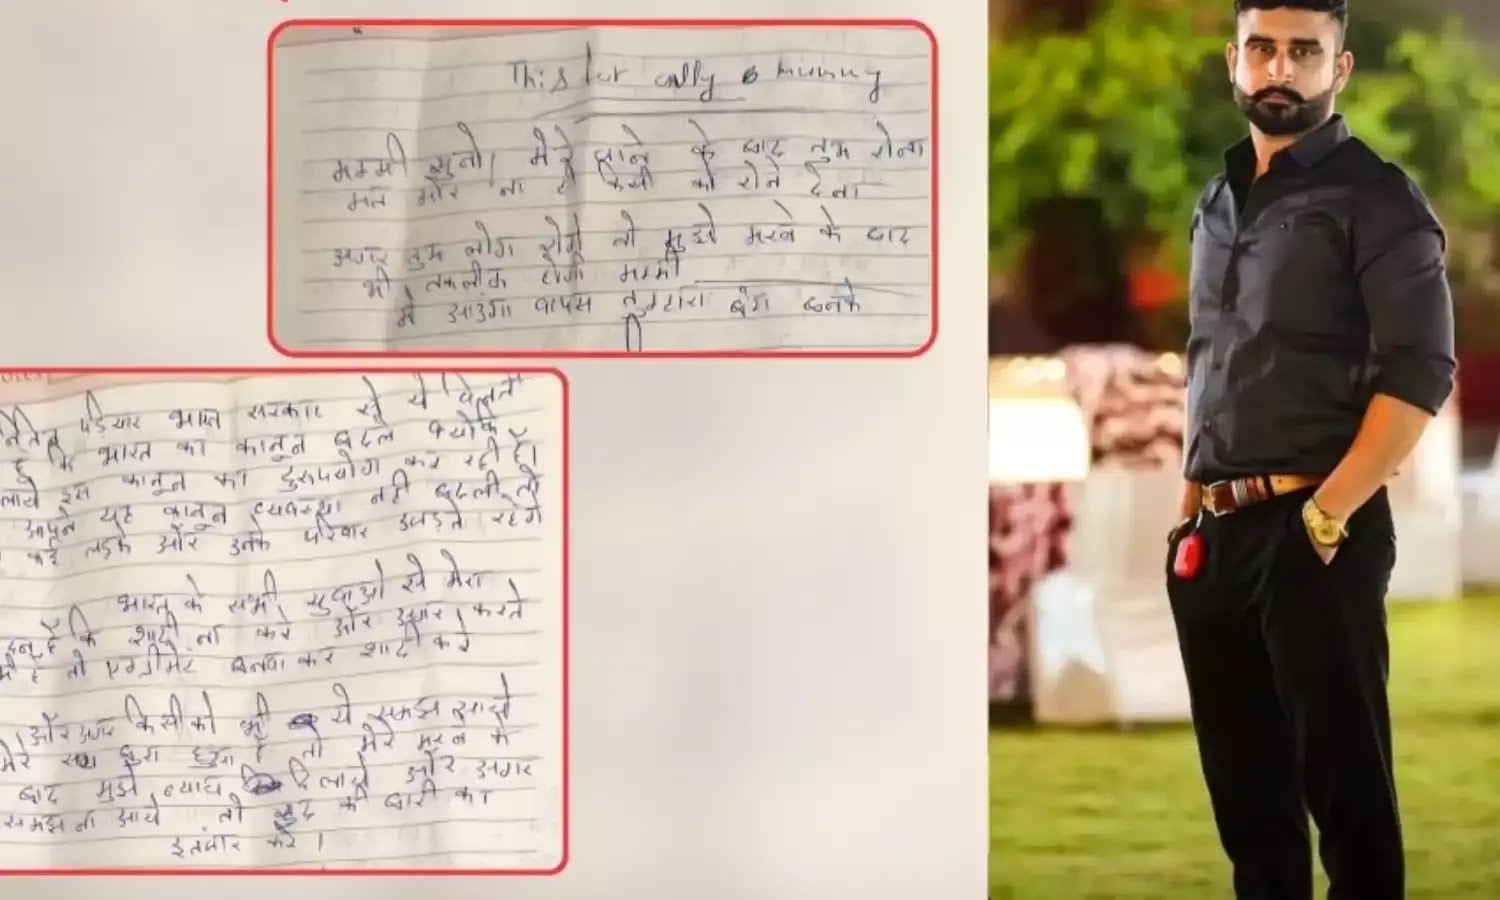 This for only mummy
मम्मी सुनो। मेरे जाने के बाद तुम रोना
मत और ना ही किसी को रोने देना
अगर तुम लोग रोगे तो मुझे मरने के बाद
भी तकलीफ होगी मम्मी
मे आउंगा वापस तुम्हारा बेटा बनके
पडियार भारत सरकार से ये विनती
हुँ कि भारत का कानून बदले क्योंकि
इस कानून का दुरुपयोग कर रही है।
आपने यह कानून व्यवस्था नही बदली तो
कई लड़के और उनके परिवार उजड़ते रहेंगे
भारत के सभी युवाओ से मेरा
है कि शादी ना करे और अगर करते
है तो एग्रीमेंट बनवा कर शादी करे
और अगर किसी को भी ये समझ आये
मेरे साथ बुरा हुआ है तो मेरे मरने के
बाद मुझे न्याय दिलाये और अगर
समझ ना आये तो खुद की बारी का
इंतजार करे।